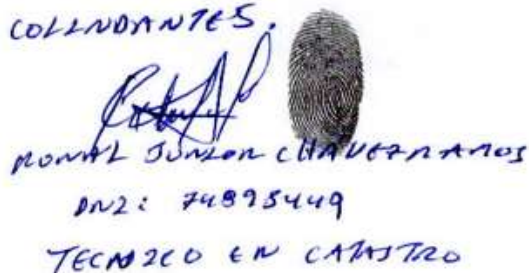 COLINDANTES.
JUNIOR CHAVEZ RAMOS
DNI: 74895449
TECNICO EN CATASTRO